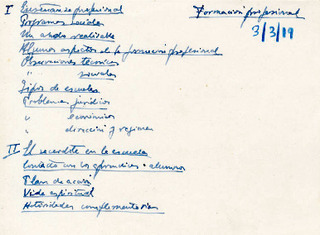 Formación profesional
3/3/19
I Orientación profesional
Programas sociales
Un anhelo realizable
Algunos aspectos de la formación profesional
Observaciones técnicas
" sociales
Tipos de escuelas
Problemas jurídicos
" económicos
" dirección y régimen
II El sacerdote en la escuela
Contacto con los aprendices-alumnos
Plan de acción
Vida espiritual
Actividades complementarias